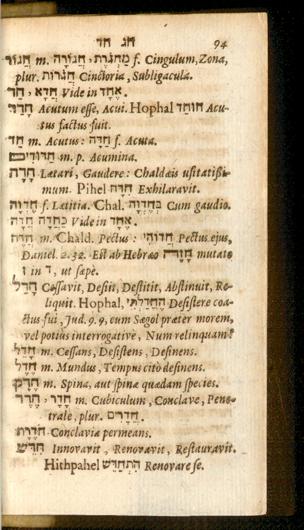 חג חד 94
חגור m. מחגרת, חגורה f. Cingulum, Zona,
plur. חגרות Cinctoria, Subligacula.
חד, חדא Vide in אחד.
חדד Acutum esse, Acui. Hophal הוחד Acu-
tus factus fuit.
חד m. Acutus: חדה f. Acuta.
חדודים m. p. Acumina.
חדה Lætari, Gaudere: Chaldæis usitatissi-
mum. Pihel חדה Exhilaravit.
חדוה f. Lætitia. Chal. בחדוה Cum gaudio.
חדה כחדה Vide in אחד.
חדה m. Chald. Pectus: חדוהי Pectus ejus,
Daniel. 2. 32. Est ab Hebræo חזה mutato
ז in ד, ut sæpè.
חדל Cessavit, Desiit, Destitit, Abstinuit, Re-
liquit. Hophal, החדלתי Desistere coa-
ctus fui, Jud. 9. 9, cum Sægol præter morem,
vel potius interrogativè, Num relinquam?
חדל m. Cessans, Desistens, Desinens.
חדל m. Mundus, Tempus citò desinens.
חדק m. Spina, aut spinæ quædam species.
חדר, חדר m. Cubiculum, Conclave, Pene-
trale, plur. חדרים.
חדרת Conclavia permeans.
חדש Innovavit, Renovavit, Restauravit.
Hithpahel התחדש Renovare se.